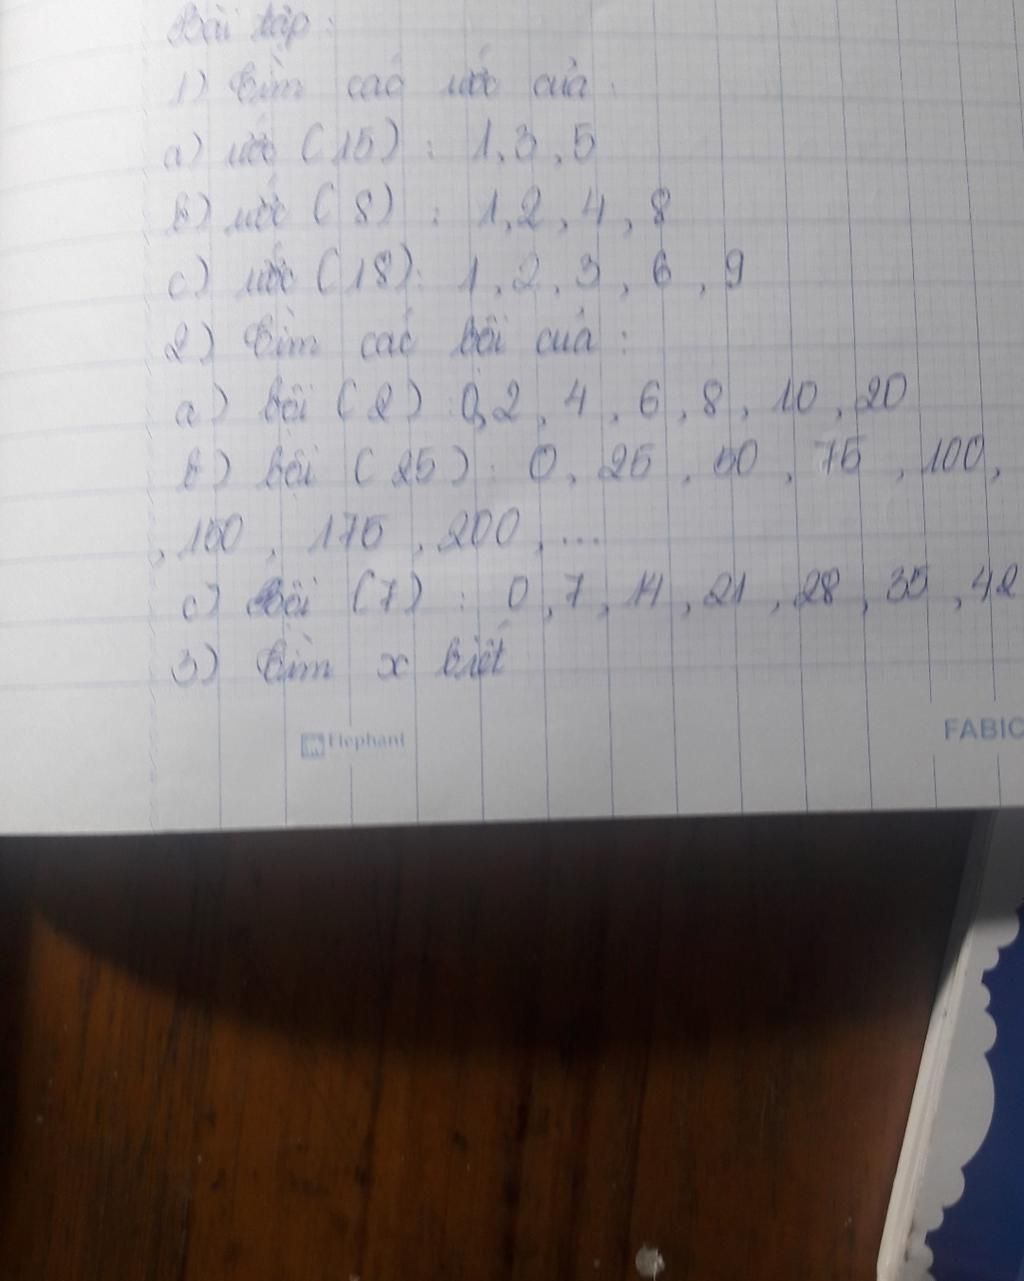 Bài tập:
1) Tìm các ước của:
a) ước (15) : 1, 3, 5
b) ước (8) : 1, 2, 4, 8
c) ước (18) : 1, 2, 3, 6, 9
2) Tìm các bội của:
a) bội (2) : 0, 2, 4, 6, 8, 10, 20
b) bội (25) : 0, 25, 50, 75, 100,
, 150, 175, 200, ...
c) Bội (7) : 0, 7, 14, 21, 28, 35, 42
3) Tìm x biết
Elephant FABIC